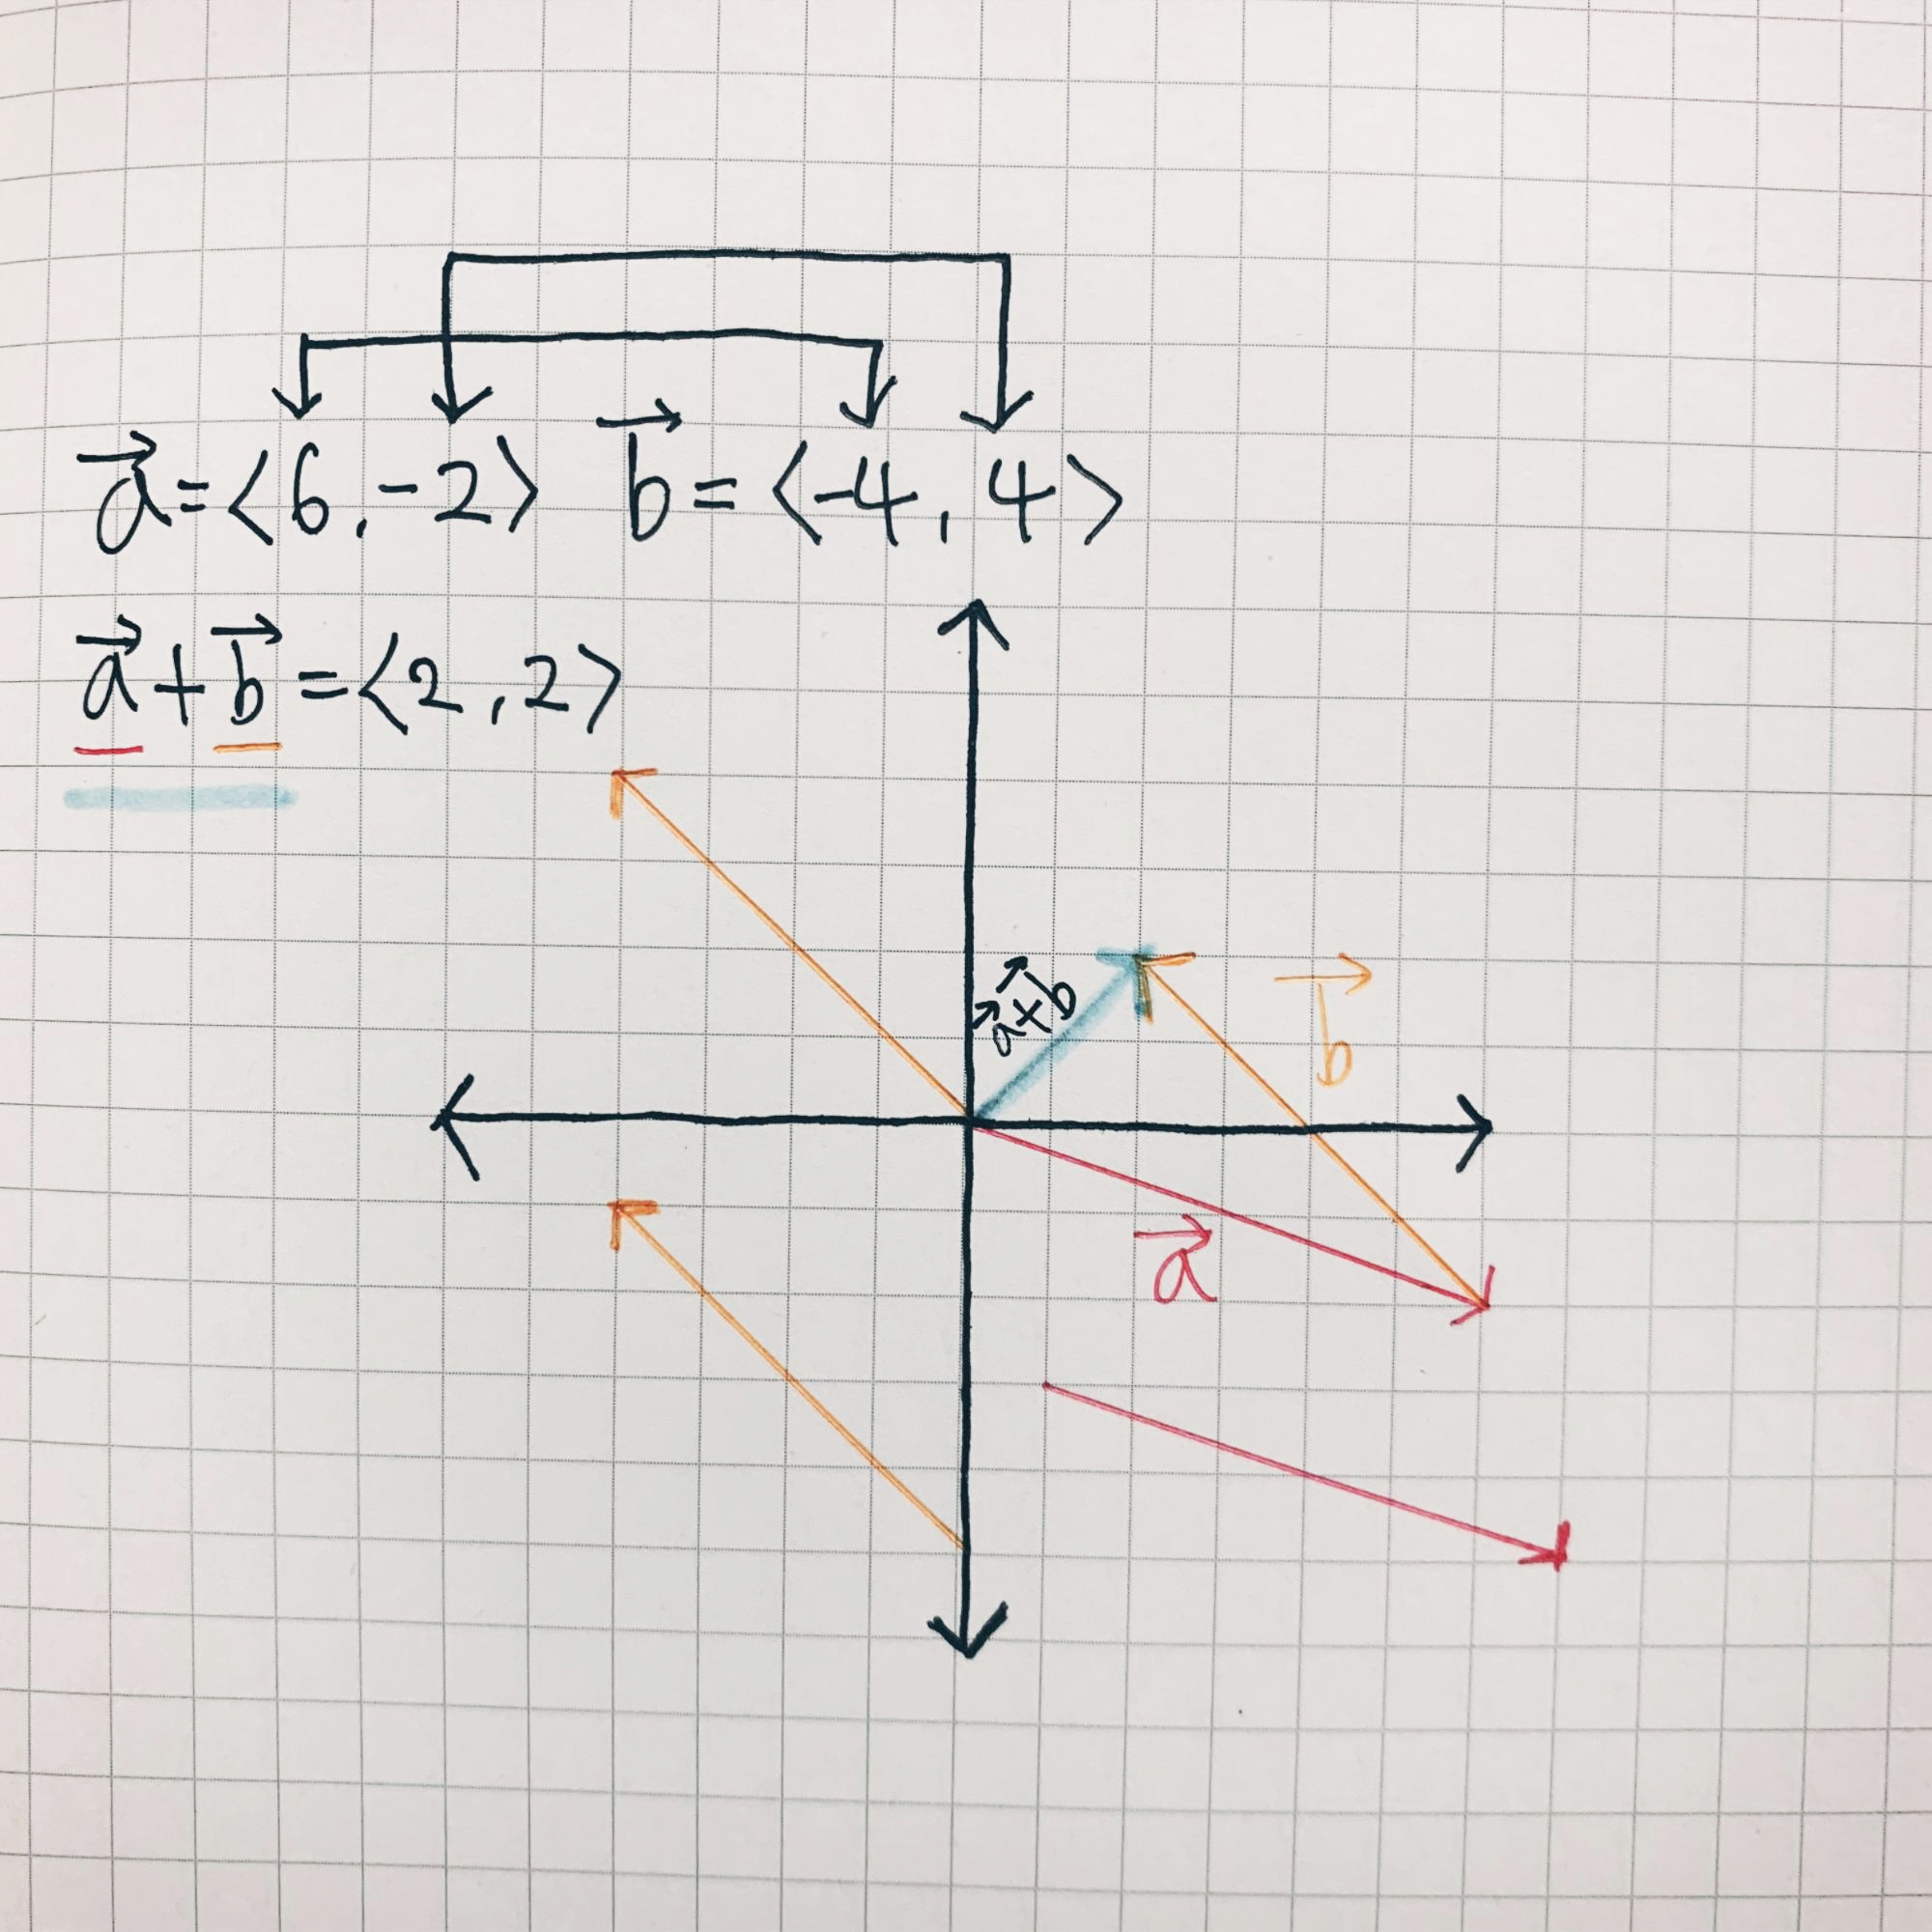 a⃗=⟨6,-2⟩ b⃗=⟨-4,4⟩
a⃗+b⃗=⟨2,2⟩
a⃗+b⃗
b⃗
a⃗